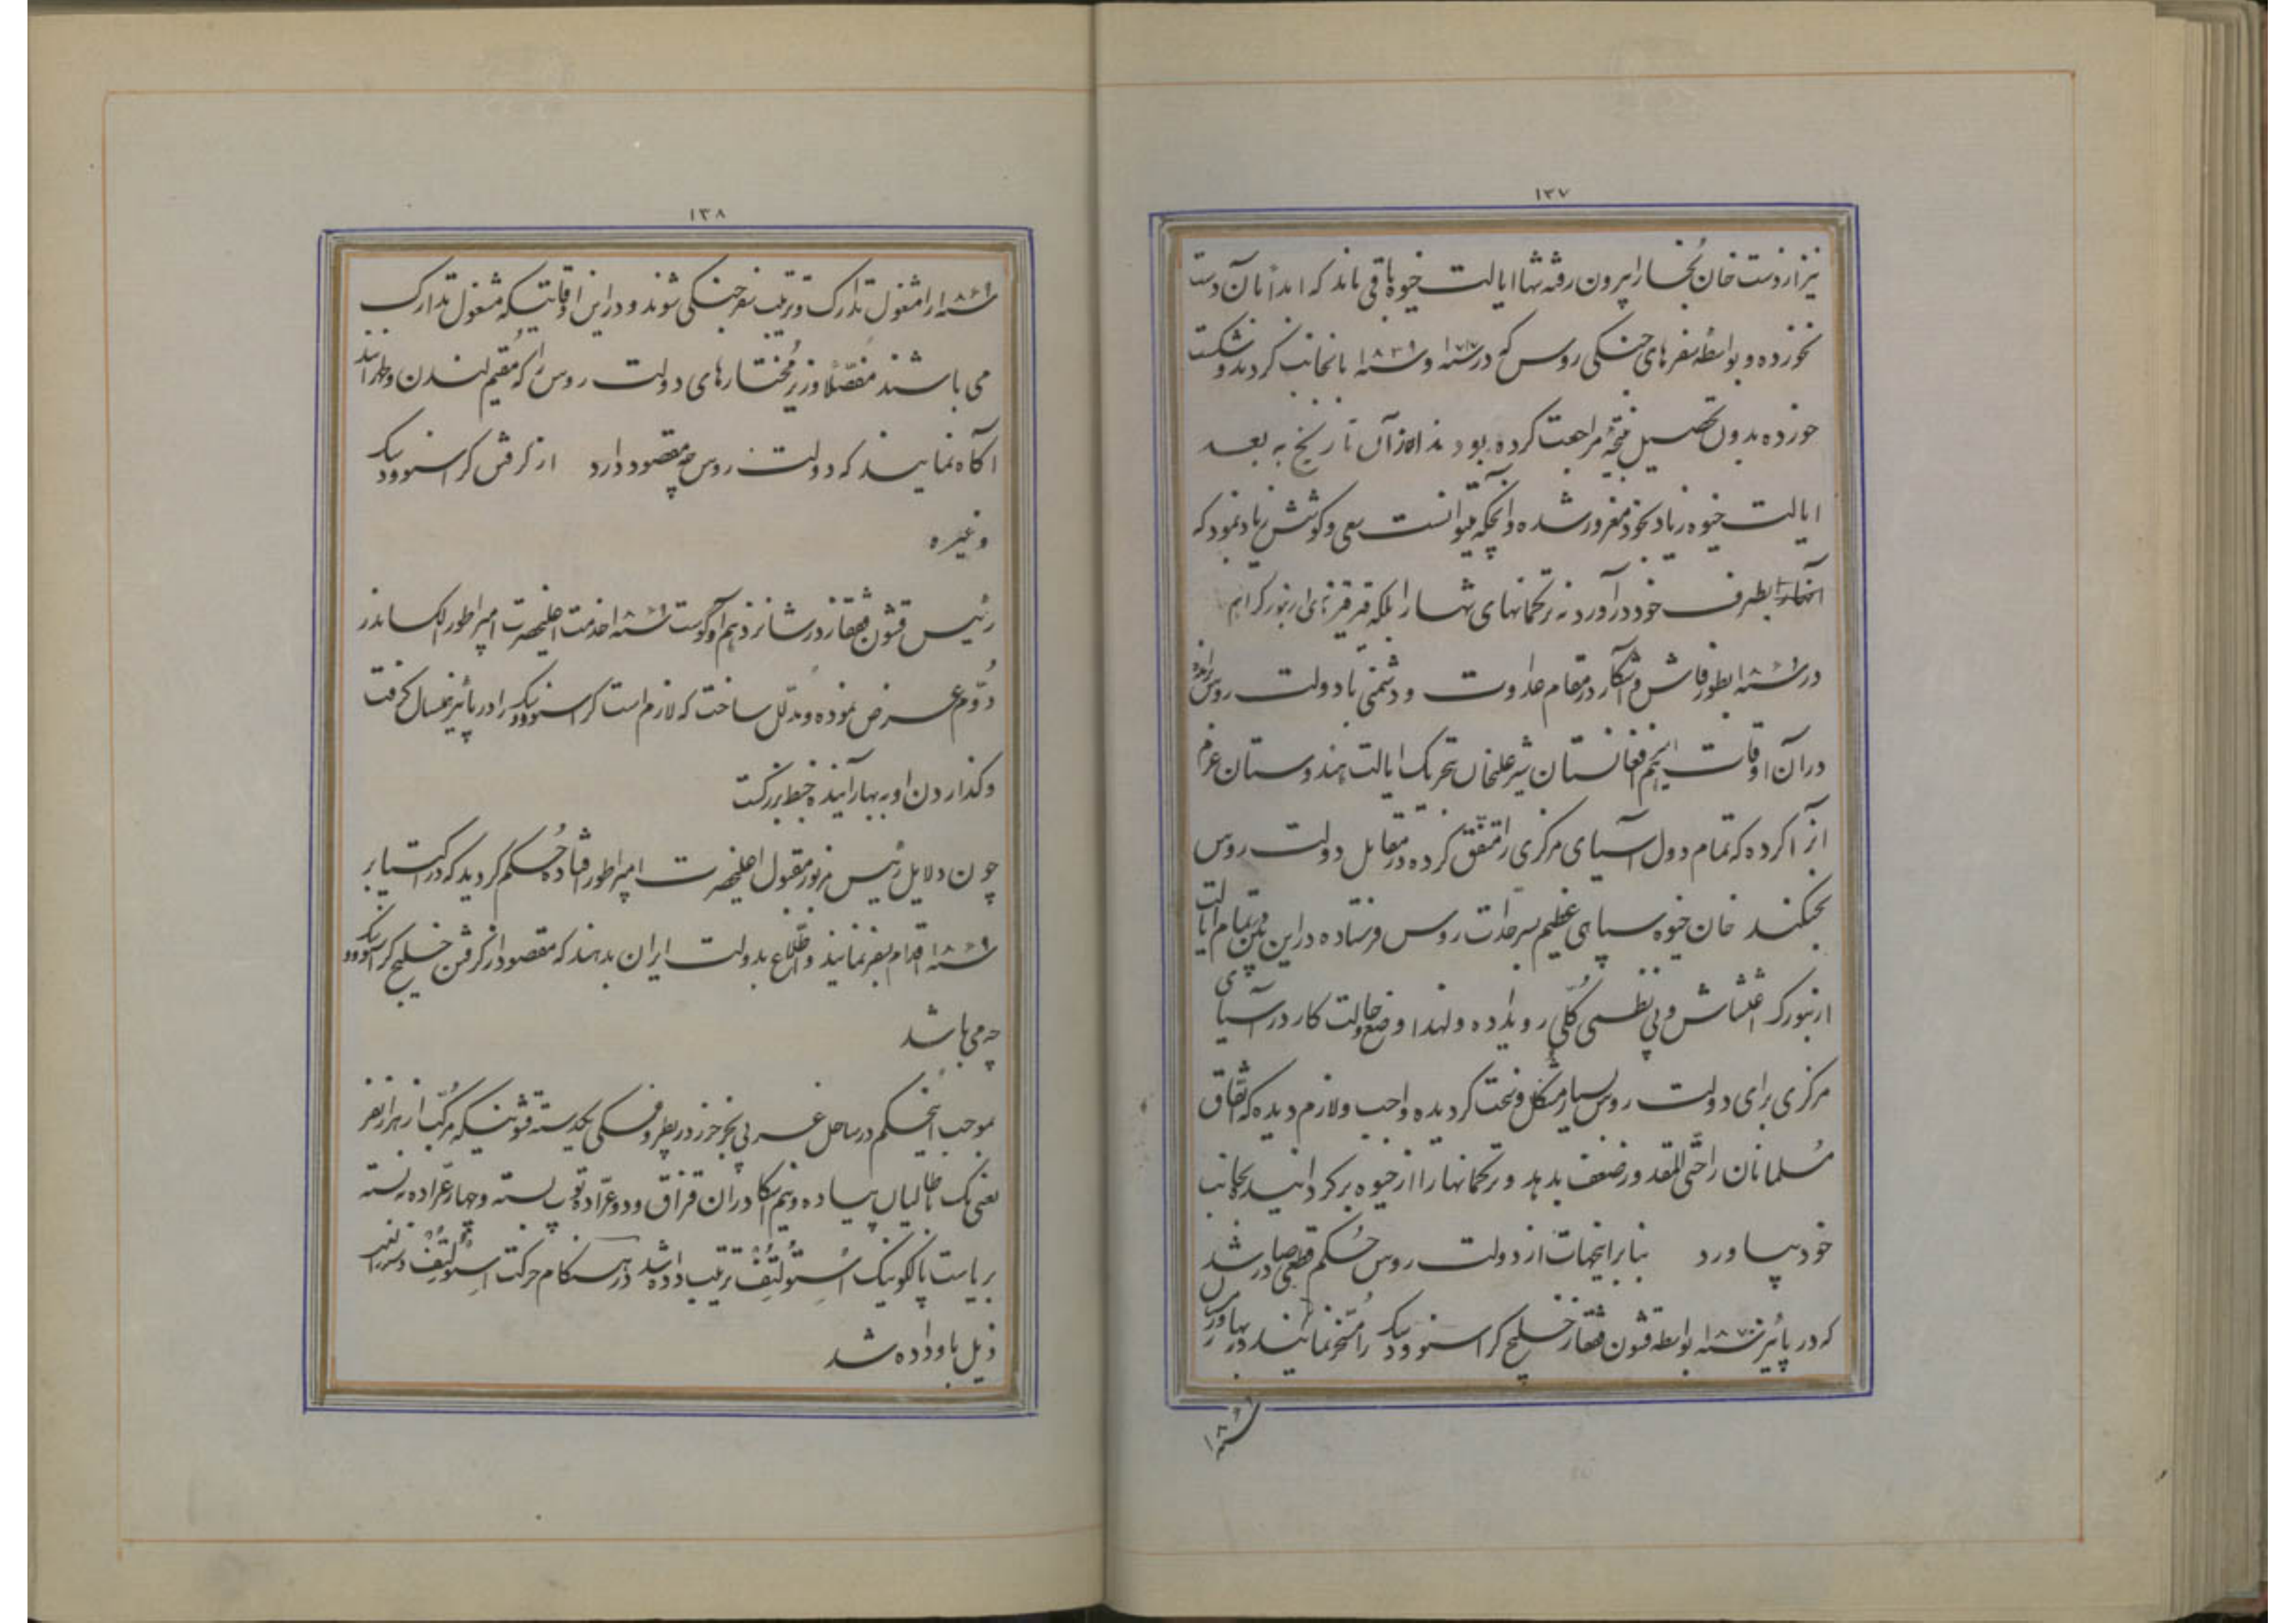 ۱۳۷
نیز از دست خان بخارا بیرون رفته تنها ایالت خیوه باقی ماند که ابداً بآن دست
نخورده و بواسطه سفرهای جنگی روس که در سنه ۱۷۱۷ و سنه ۱۸۳۹ بانجانب کردند و شکست
خورده بدون تحصیل نتیجه مراجعت کرده بودند از آن تاریخ به بعد
ایالت خیوه زیاد بخود مغرور شده و آنچکه میتوانست سعی و کوشش زیاد نمود که
بطرف خود درآورد نه ترکمانهای تنها را بلکه قرقزهای ارنبورک را هم
در سنه ۱۸۶۹ بطور فاش و آشکار در مقام عداوت و دشمنی با دولت روس برآمده
در آن اوقات افغانستان شیرعلیخان بتحریک ایالت هندوستان عزم
آنرا کرده که تمام دول آسیای مرکزی را متفق کرده در مقابل دولت روس
بجنگند خان خیوه سپاهی عظیم بسرحدات روس فرستاده در این بین تمام ایالت
ارنبورک اغتشاش و بی نظمی کلی رویداده و لهذا وضع و حالت کار در آسیای
مرکزی برای دولت روس بسیار مشکل و سخت گردیده واجب و لازم دیده که نفاق
مسلمانان را حتی المقدور ضعف بدهد و ترکمانها را از خیوه برگردانید بجانب
خود بیاورد بنابر اینجهات از دولت روس حکم قطعی صادر شد
که در پائیز سنه ۱۸۷۰ بواسطه قشون قفقاز خلیج کراسنوودیک را مسخر نمایند در بهار و
سنه ۱۸۶۹
۱۳۸
سنه ۱۸۶۹ را مشغول تدارک و ترتیب سفر جنگی شوند و در این اوقاتیکه مشغول تدارک
می باشند مفصّلاً وزیر مُختارهای دولت روس را که مُقیم لندن و طهرانند
آگاه نمایند که دولت روس چه مقصود دارد از گرفتن کراسنوودیک
و غیره
رئیس قشون قفقاز در شانزدهم آوگوست سنه ۱۸۶۹ خدمت اعلیحضرت امپراطور الکساندر
دُوّم عرض نموده و مدلّل ساخت که لازم است کراسنوودیک را در پائیز همسال گرفت
و گذاردن او به بهار آینده خبط بزرگست
چون دلایل رئیس مزبور مقبول اعلیحضرت امپراطور افتاد حُکم گردید که در اکتیابر
سنه ۱۸۶۹ اقدام بسفر نمایند و اطّلاع بدولت ایران بدهند که مقصود از گرفتن خلیج کراسنوودیک
چه می باشد
بموجب اینحکم در ساحل غربی بحر خزر در پطروفسکی یکدسته قشونیکه مرکّب از هزار نفر
یعنی یک باطالیان پیاده و نیم اسکادران قزاق و دو عرّاده توپ بسته و چهار عرّاده نه بسته
بریاست پالکونیک اُستولتُف ترتیب داده شد در هنگام حرکت استولتُف دستورالعمل
ذیل باو داده شد